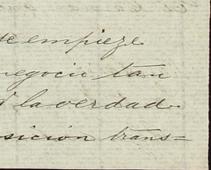 de empieze
negocio tan
á la verdad
sicion trans=